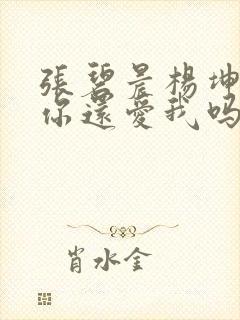 張碧晨楊坤
你還愛我嗎
肖水金